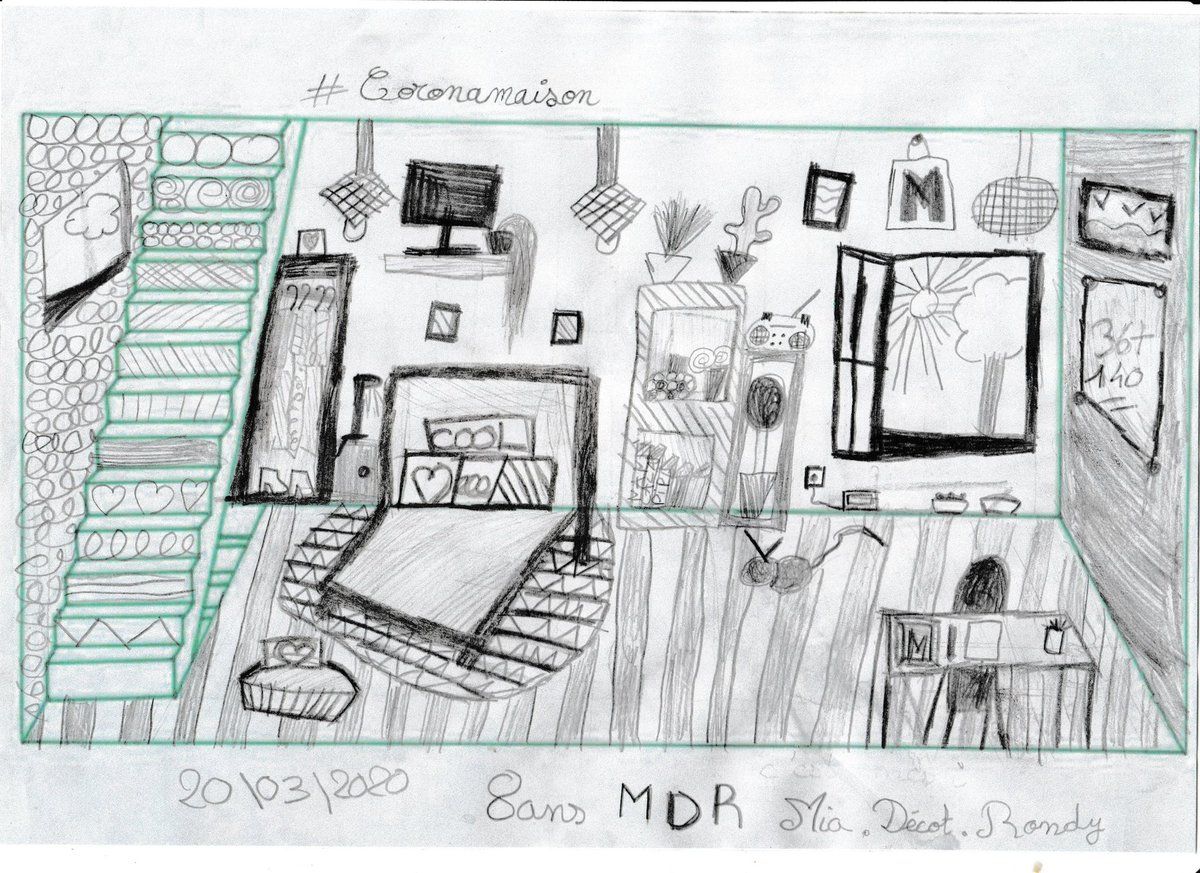 # Coronamaison
M
M M
367
140
M
20/03/2020 8ans MDR Mia. Décot. Rondy